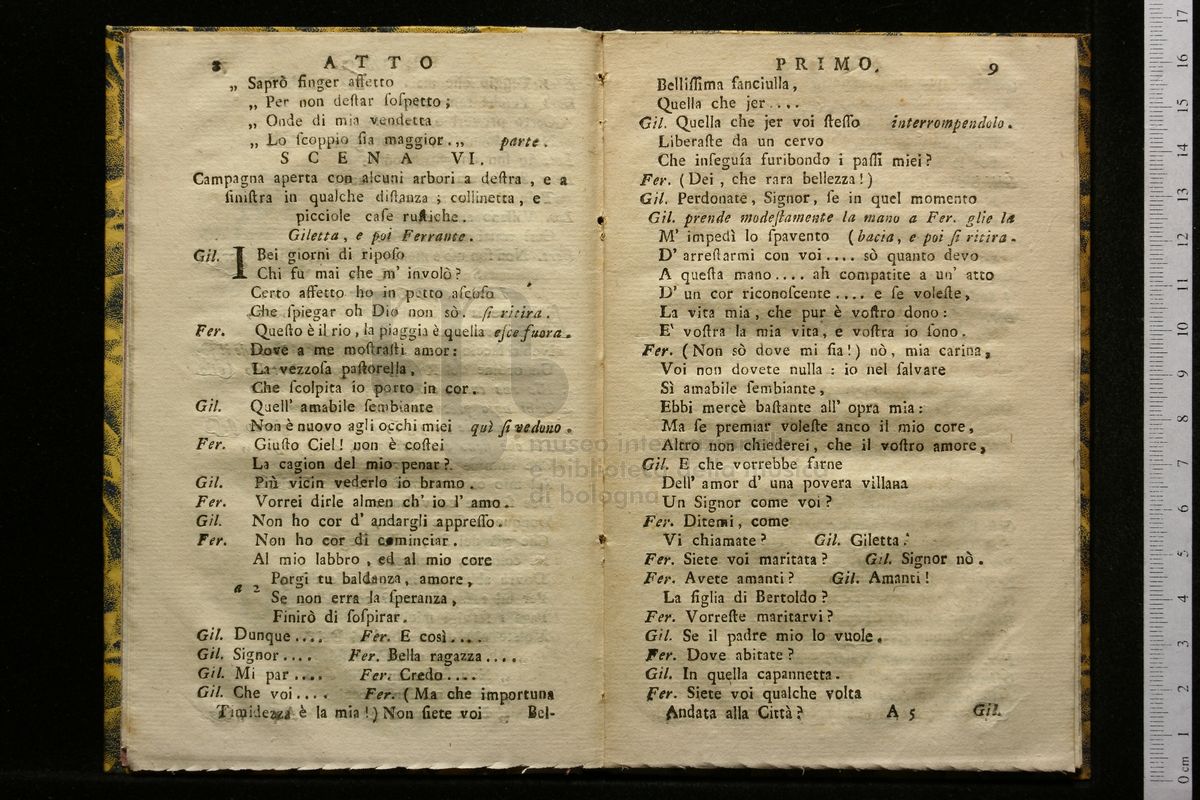 8 A T T O
„ Saprò finger affetto
„ Per non deſtar ſoſpetto;
„ Onde di mia vendetta
„ Lo ſcoppio ſia maggior.„ parte.
S C E N A VI.
Campagna aperta con alcuni arbori a deſtra, e a
ſiniſtra in qualche diſtanza; collinetta, e
picciole caſe ruſtiche.
Giletta, e poi Ferrante.
Gil. I Bei giorni di ripoſo
Chi fu mai che m' involò?
Certo affetto ho in petto aſcoſo
Che ſpiegar oh Dio non sò. ſi ritira.
Fer. Queſto è il rio, la piaggia è quella eſce fuora.
Dove a me moſtraſti amor:
La vezzoſa paſtorella,
Che ſcolpita io porto in cor.
Gil. Quell' amabile ſembiante
Non è nuovo agli occhi miei quì ſi vedono.
Fer. Giuſto Ciel! non è coſtei
La cagion del mio penar?
Gil. Più vicin vederlo io bramo.
Fer. Vorrei dirle almen ch' io l' amo.
Gil. Non ho cor d' andargli appreſſo.
Fer. Non ho cor di cominciar.
Al mio labbro, ed al mio core
a 2 Porgi tu baldanza, amore,
Se non erra la ſperanza,
Finirò di ſoſpirar.
Gil. Dunque.... Fer. E così....
Gil. Signor.... Fer. Bella ragazza....
Gil. Mi par.... Fer. Credo....
Gil. Che voi.... Fer. (Ma che importuna
Timidezza è la mia!) Non ſiete voi Bel-
PRIMO. 9
Belliſſima fanciulla,
Quella che jer....
Gil. Quella che jer voi ſteſſo interrompendolo.
Liberaſte da un cervo
Che inſeguía furibondo i paſſi miei?
Fer. (Dei, che rara bellezza!)
Gil. Perdonate, Signor, ſe in quel momento
Gil. prende modeſtamente la mano a Fer. glie la
M' impedì lo ſpavento (bacia, e poi ſi ritira.
D' arreſtarmi con voi.... sò quanto devo
A queſta mano.... ah compatite a un' atto
D' un cor riconoſcente.... e ſe voleſte,
La vita mia, che pur è voſtro dono:
E' voſtra la mia vita, e voſtra io ſono.
Fer. (Non sò dove mi ſia!) nò, mia carina,
Voi non dovete nulla: io nel ſalvare
Sì amabile ſembiante,
Ebbi mercè baſtante all' opra mia:
Ma ſe premiar voleſte anco il mio core,
Altro non chiederei, che il voſtro amore,
Gil. E che vorrebbe farne
Dell' amor d' una povera villana
Un Signor come voi?
Fer. Ditemi, come
Vi chiamate? Gil. Giletta.
Fer. Siete voi maritata? Gil. Signor nò.
Fer. Avete amanti? Gil. Amanti!
La figlia di Bertoldo?
Fer. Vorreſte maritarvi?
Gil. Se il padre mio lo vuole.
Fer. Dove abitate?
Gil. In quella capannetta.
Fer. Siete voi qualche volta
Andata alla Città? A 5 Gil.
museo inte
e bibliote della musica
di bologna
0 cm 1 2 3 4 5 6 7 8 9 10 11 12 13 14 15 16 17